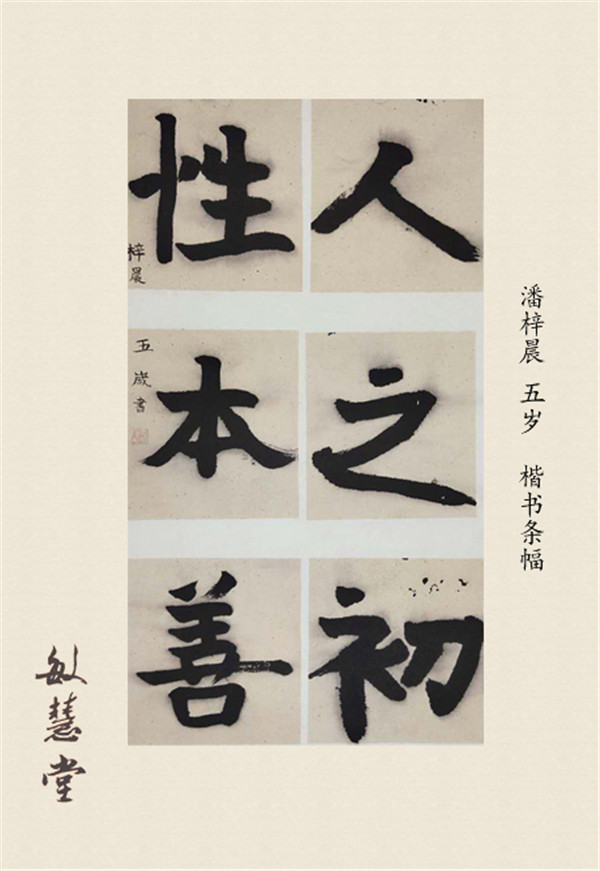 人之初
性本善
梓晨
五歲書
潘梓晨 五岁 楷书条幅
敏慧堂